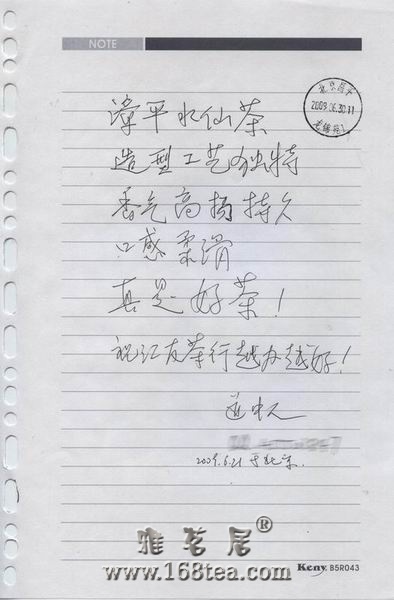 NOTE
漳平水仙茶
造型工艺独特
香气高扬持久
口感柔滑
真是好茶！
祝江友茶行越办越好！
2009.6.21 于北京.
北京昌平
2009.06.30.11
雅茗居®
www.168tea.com
Keny B5R043